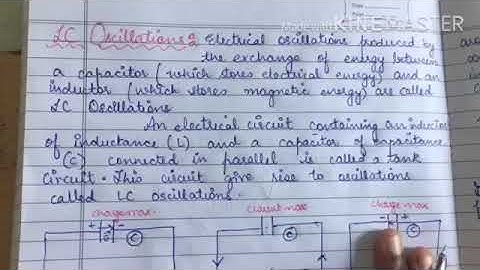 Made with KINEMASTER
LC Oscillations: Electrical oscillations produced by
the exchange of energy between
a capacitor (which stores electrical energy) and an
inductor (which stores magnetic energy) are called
LC Oscillations
An electrical circuit containing an inductor
of inductance (L) and a capacitor of capacitance
(C) connected in parallel is called a tank
circuit. This circuit give rise to oscillations
called LC oscillations.
Charge max. Current max Charge max
+ - C C + - C